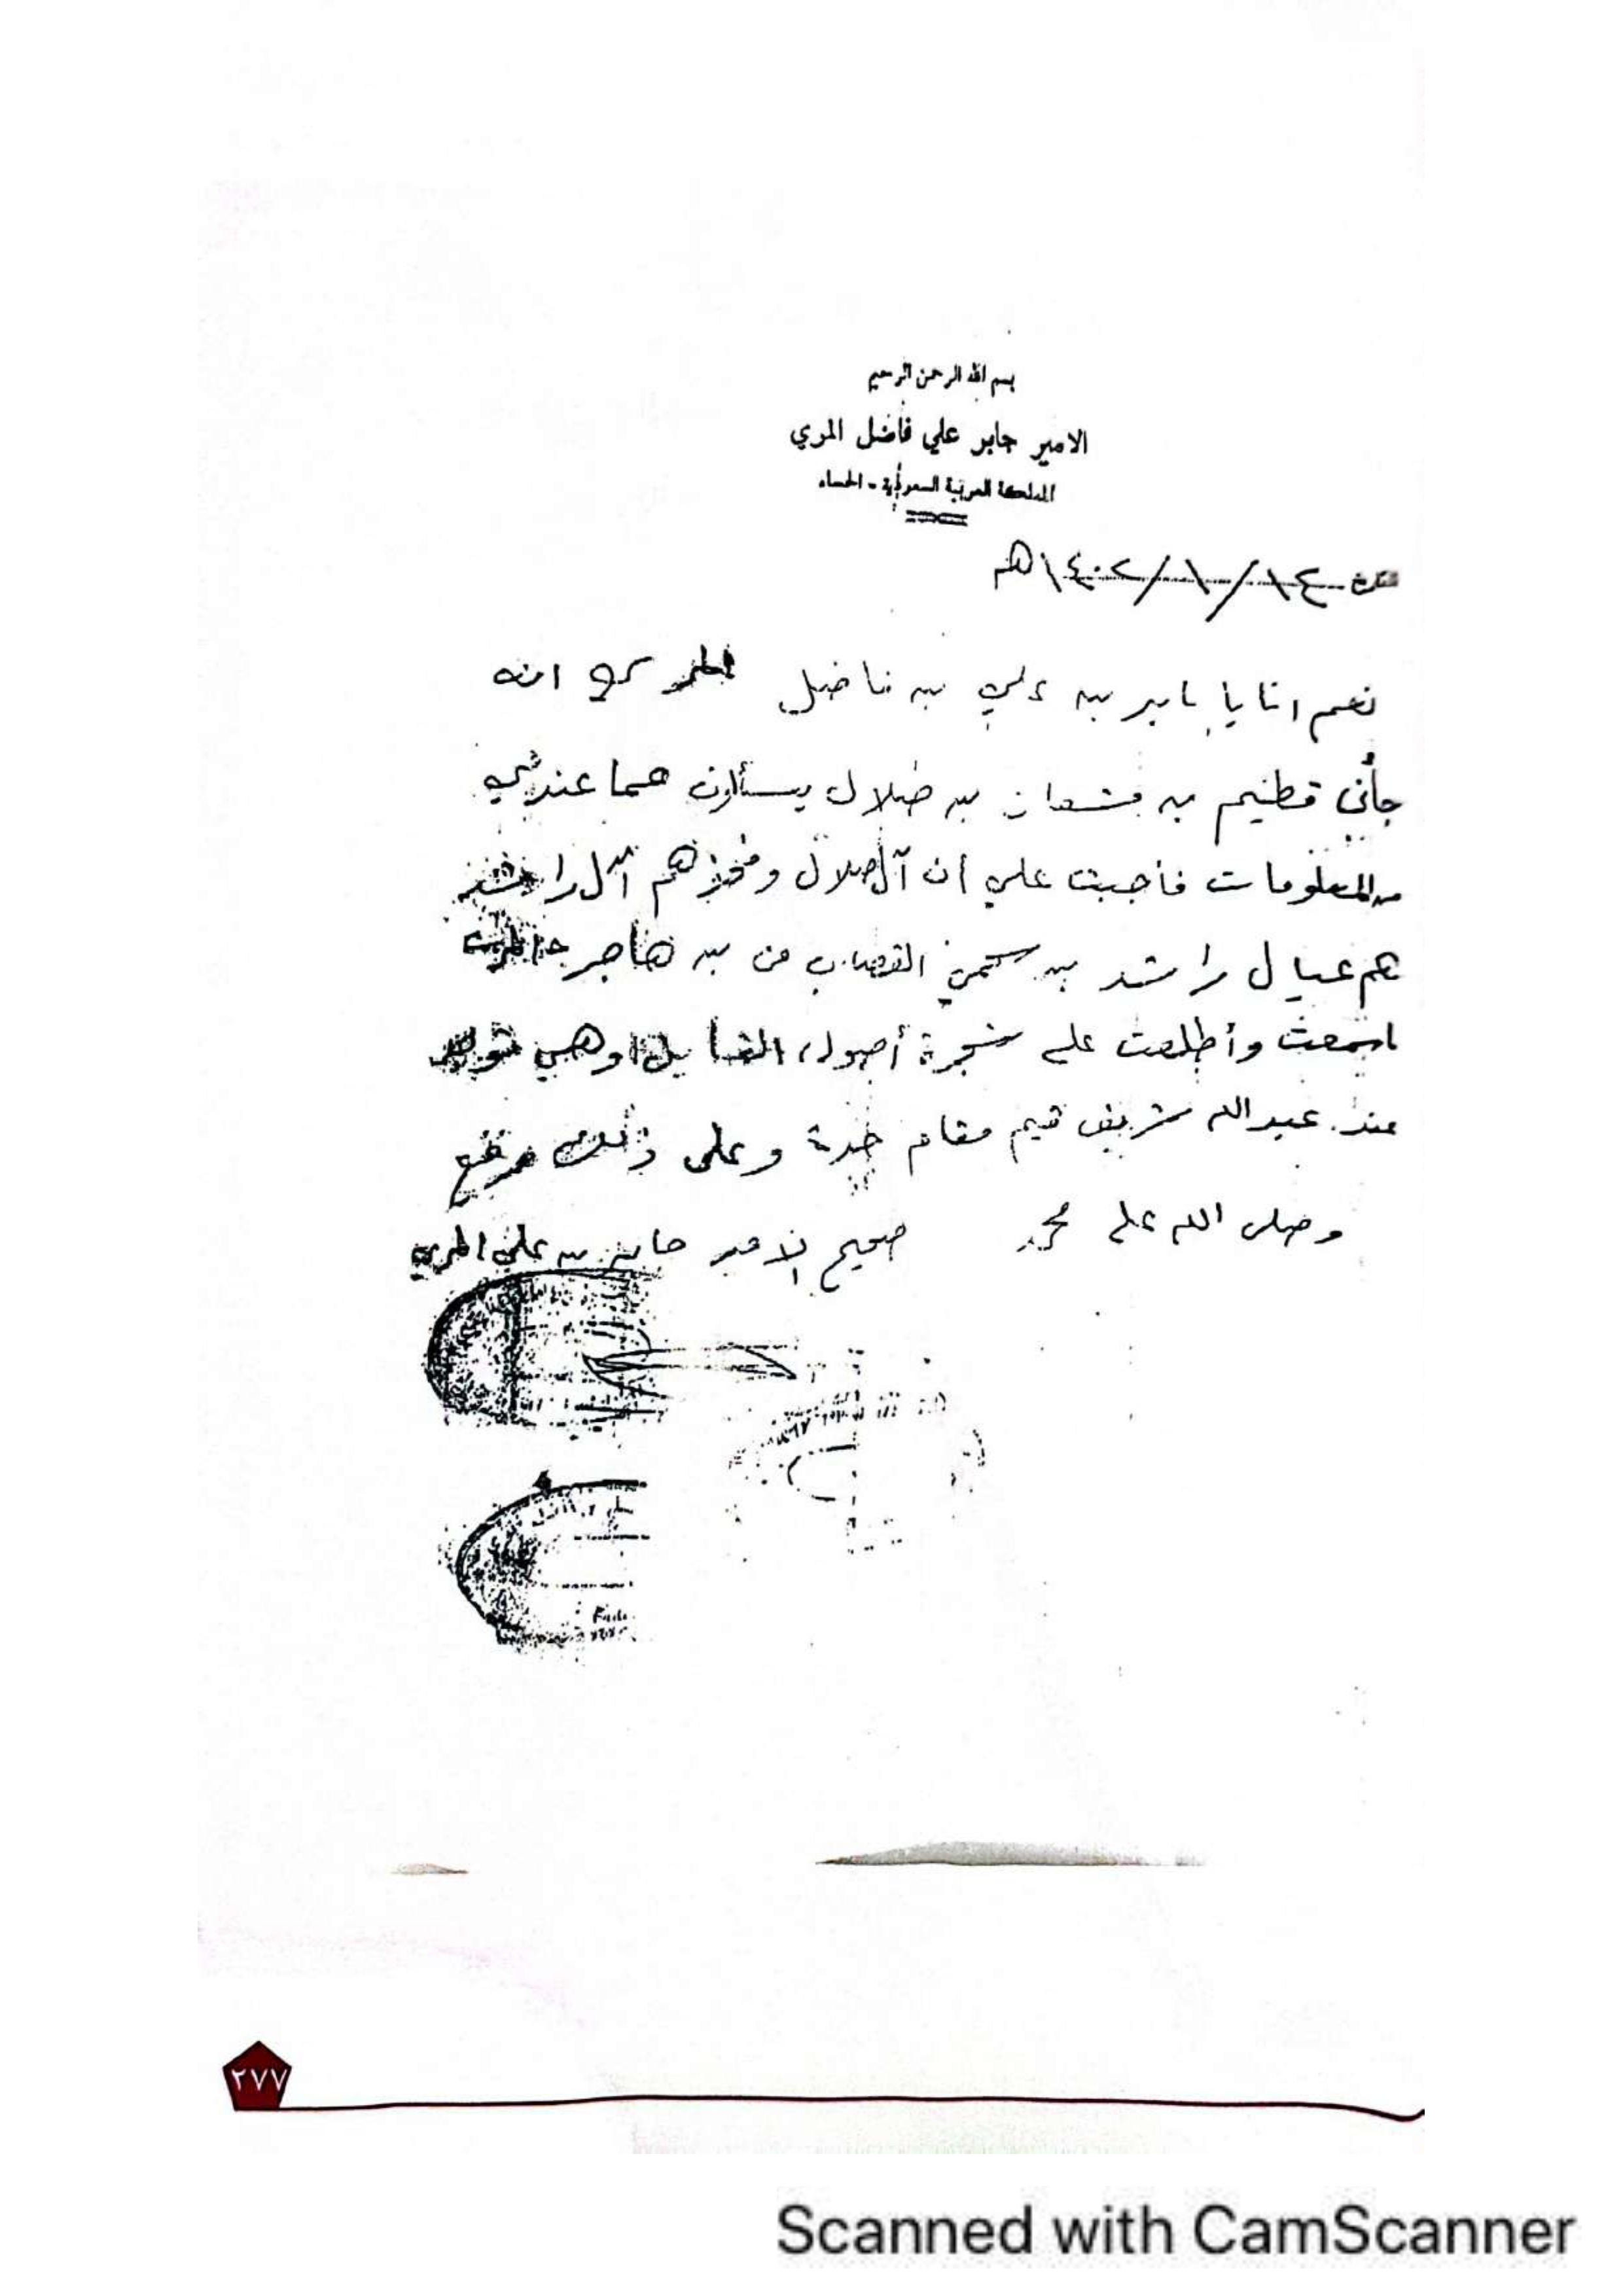 بسم الله الرحمن الرحيم
الامير جابر علي فاضل المري
المملكة العربية السعودية - الحساء
١٤٠٢/١/١٤هـ
نعم انا يا جابر بن علي بن فاضل المري انه
جأني قطيم بن مشعان بن ضلال يسئلون عما عندي
من المعلومات فاجبت علي أن آل ضلال وفخذهم آل راشد
هم عيال راشد بن القصاب من بن هاجر
اسمعت وأطلعت على شجرة أصول القبايل وهي توجد
عند عبدالله شريف قيم مقام جدة وعلى ذلك نوقع
وصلى الله على محمد
صحيح الامير جابر بن علي المري
٢٧٧
Scanned with CamScanner